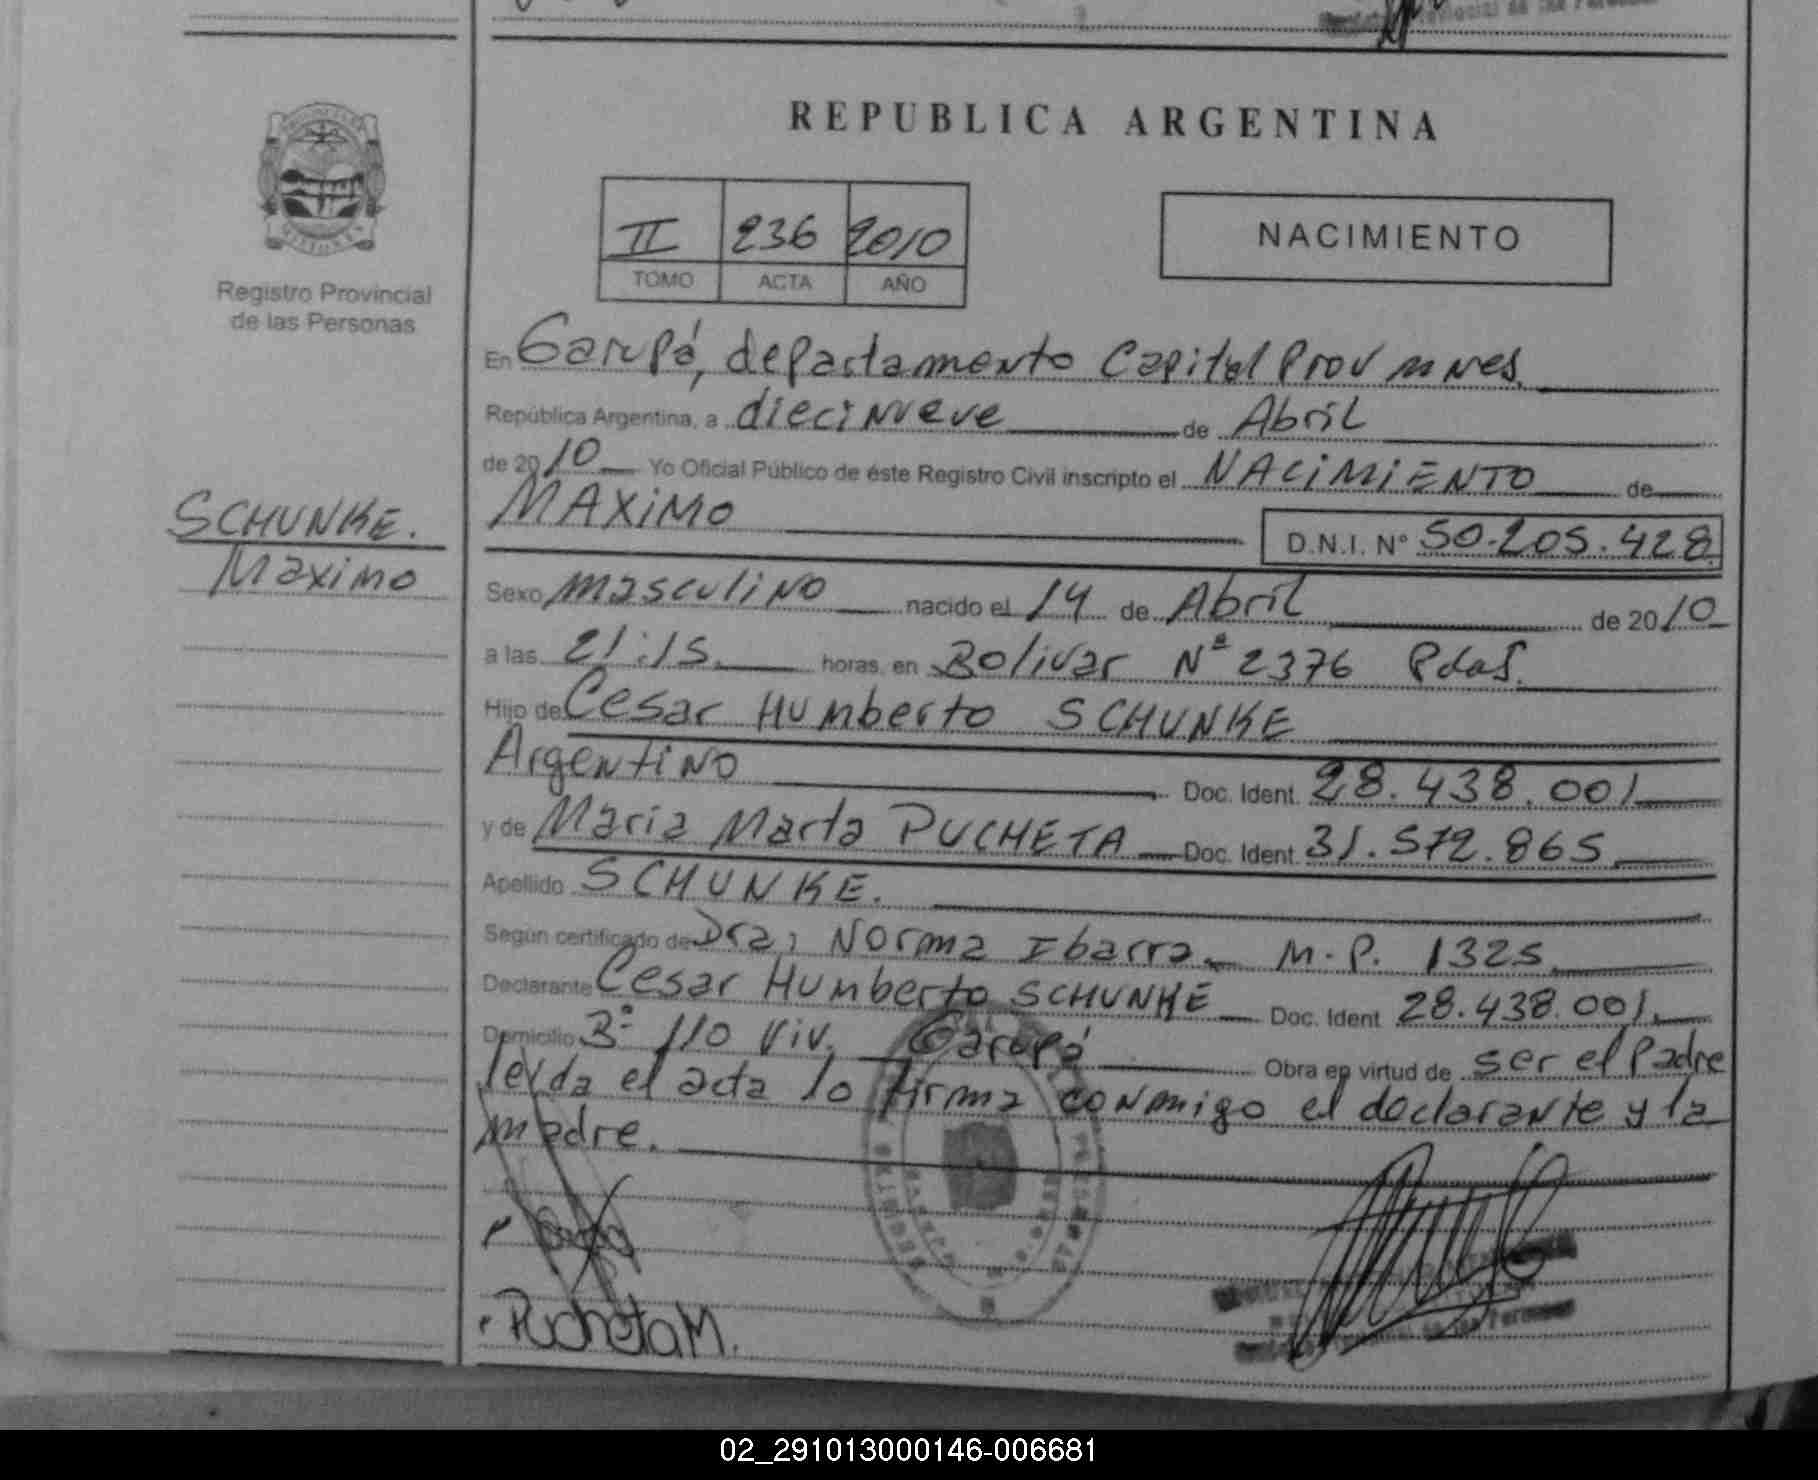 REPUBLICA ARGENTINA
II 236 2010
TOMO ACTA AÑO
NACIMIENTO
Registro Provincial
de las Personas
SCHUNKE.
Maximo
En Garupá, departamento Capital Prov mnes.
República Argentina, a diecinueve de Abril
de 2010 Yo Oficial Público de éste Registro Civil inscripto el NACIMIENTO de
MAXIMO D.N.I. N° 50.205.428
Sexo masculino nacido el 14 de Abril de 2010
a las 21:15 horas, en Bolivar Nº 2376 Pdas.
Hijo de Cesar Humberto SCHUNKE
Argentino Doc. Ident. 28.438.001
y de Maria Marta PUCHETA Doc. Ident. 31.572.865
Apellido SCHUNKE.
Según certificado de Dra, Norma Ibarra. M.P. 1325
Declarante Cesar Humberto SCHUNKE Doc. Ident 28.438.001.
Domicilio Bº 110 Viv. Garupá Obra en virtud de ser el Padre
leída el acta lo firma conmigo el declarante y la
madre.
Pucheta M.
02_291013000146-006681